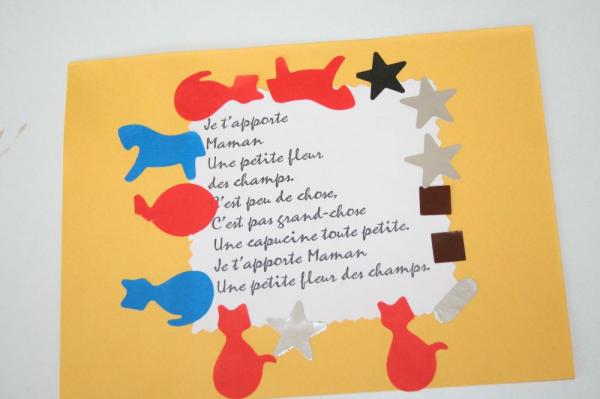 Je t'apporte
Maman
Une petite fleur
des champs.
C'est peu de chose,
C'est pas grand-chose
Une capucine toute petite.
Je t'apporte Maman
Une petite fleur des champs.